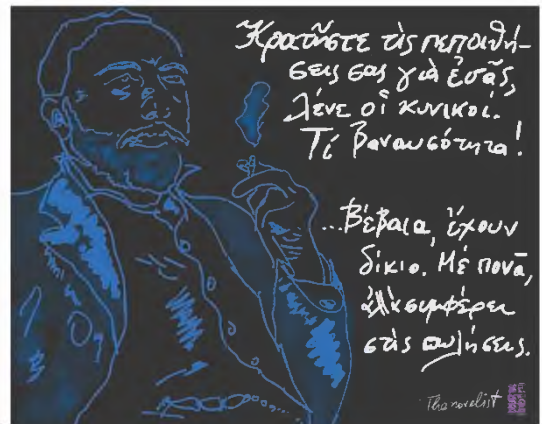 Κρατῆστε τὶς πεποιθή-
σεις σας γιὰ ἐσᾶς,
λένε οἱ κυνικοί.
Τί βαναυσότητα!
...Βέβαια, ἔχουν
δίκιο. Μὲ πονᾶ,
ἀλλὰ συμφέρει
στὶς πωλήσεις.
Thanovelist